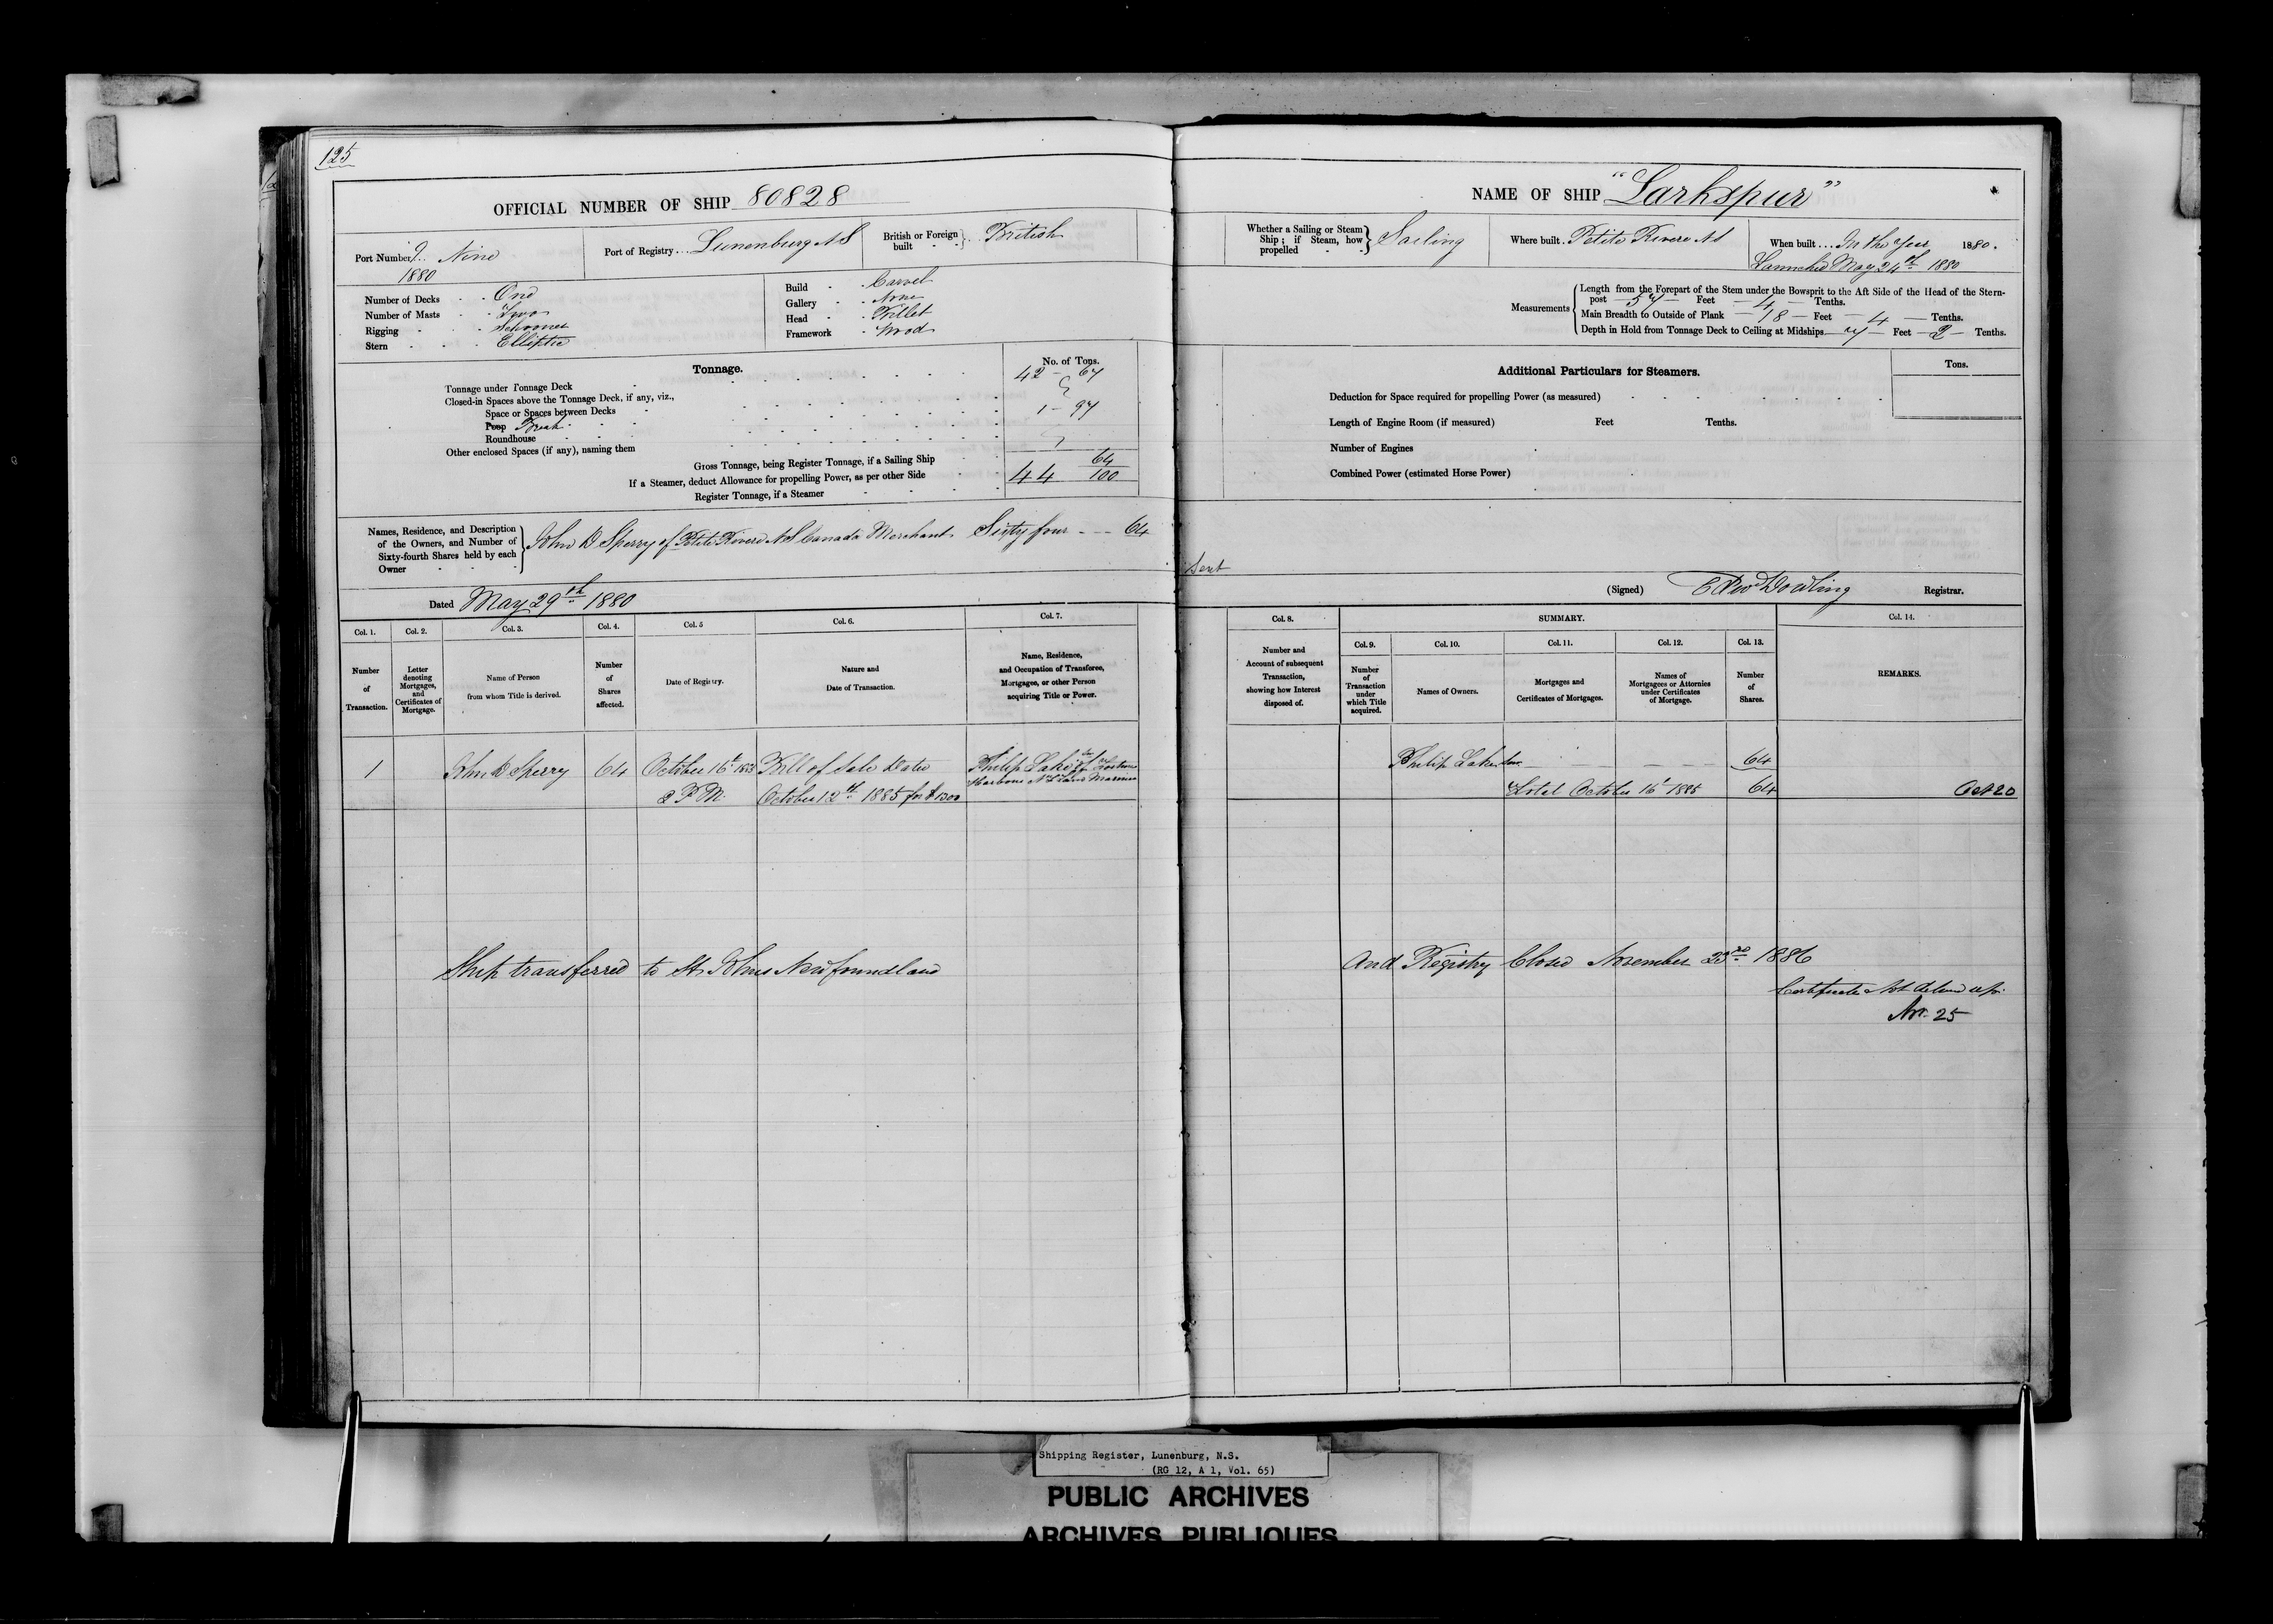 125
OFFICIAL NUMBER OF SHIP 80828
Port Number 9. Nine
1880
Port of Registry... Lunenburg NS
British or Foreign built British
Number of Decks One
Number of Masts Two
Rigging Schooner
Stern Elliptic
Build Carvel
Gallery None
Head Billet
Framework Wood
Tonnage.
No. of Tons.
Tonnage under Tonnage Deck 42 - 67
Closed-in Spaces above the Tonnage Deck, if any, viz.,
Space or Spaces between Decks
Poop Break 1 - 97
Roundhouse
Other enclosed Spaces (if any), naming them
Gross Tonnage, being Register Tonnage, if a Sailing Ship 44 64/100
If a Steamer, deduct Allowance for propelling Power, as per other Side
Register Tonnage, if a Steamer
Names, Residence, and Description of the Owners, and Number of Sixty-fourth Shares held by each Owner
John D Sperry of Petite Riviere NS Canada Merchant Sixty four - - - 64
Dated May 29th 1880
Col. 1. Col. 2. Col. 3. Col. 4. Col. 5 Col. 6. Col. 7.
Number of Transaction.
Letter denoting Mortgages, and Certificates of Mortgage.
Name of Person from whom Title is derived.
Number of Shares affected.
Date of Registry.
Nature and Date of Transaction.
Name, Residence, and Occupation of Transferee, Mortgagee, or other Person acquiring Title or Power.
1 John D Sperry 64 October 16th Bill of Sale Dated Philip Lake
2 P M. October 12th 1885 for $1300 Harbour Mariner
Ship transferred to St Johns Newfoundland
NAME OF SHIP "Larkspur"
Whether a Sailing or Steam Ship; if Steam, how propelled Sailing
Where built. Petite Riviere NS
When built... In the Year 1880.
Launched May 24th 1880
Measurements
Length from the Forepart of the Stem under the Bowsprit to the Aft Side of the Head of the Stern-
post 57 Feet 4 Tenths.
Main Breadth to Outside of Plank 18 Feet 4 Tenths.
Depth in Hold from Tonnage Deck to Ceiling at Midships 7 Feet 2 Tenths.
Additional Particulars for Steamers.
Tons.
Deduction for Space required for propelling Power (as measured)
Length of Engine Room (if measured) Feet Tenths.
Number of Engines
Combined Power (estimated Horse Power)
Sent
(Signed) Edwd Dowling Registrar.
Col. 8. SUMMARY. Col. 14.
Col. 9. Col. 10. Col. 11. Col. 12. Col. 13.
Number and Account of subsequent Transaction, showing how Interest disposed of.
Number of Transaction under which Title acquired.
Names of Owners.
Mortgages and Certificates of Mortgages.
Names of Mortgagees or Attornies under Certificates of Mortgage.
Number of Shares.
REMARKS.
Philip Lake 64
Total October 16th 1885 64 Oct 20
And Registry Closed November 23rd 1886
Certificate
Nov. 25
Shipping Register, Lunenburg, N.S.
(RG 12, A 1, Vol. 65)
PUBLIC ARCHIVES
ARCHIVES PUBLIQUES